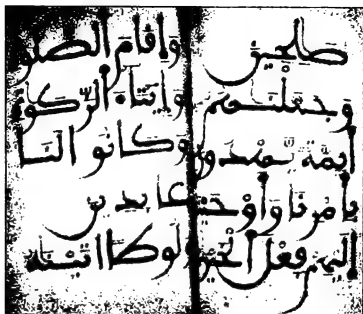 صلحين
وجعلنهم
ايمة يهدون
بأمرنا وأوحينا
اليهم فعل الخير
وإقام الصلو
وايتاء الزكوة
وكانوا لنا
عابدين
ولوطا اتينه